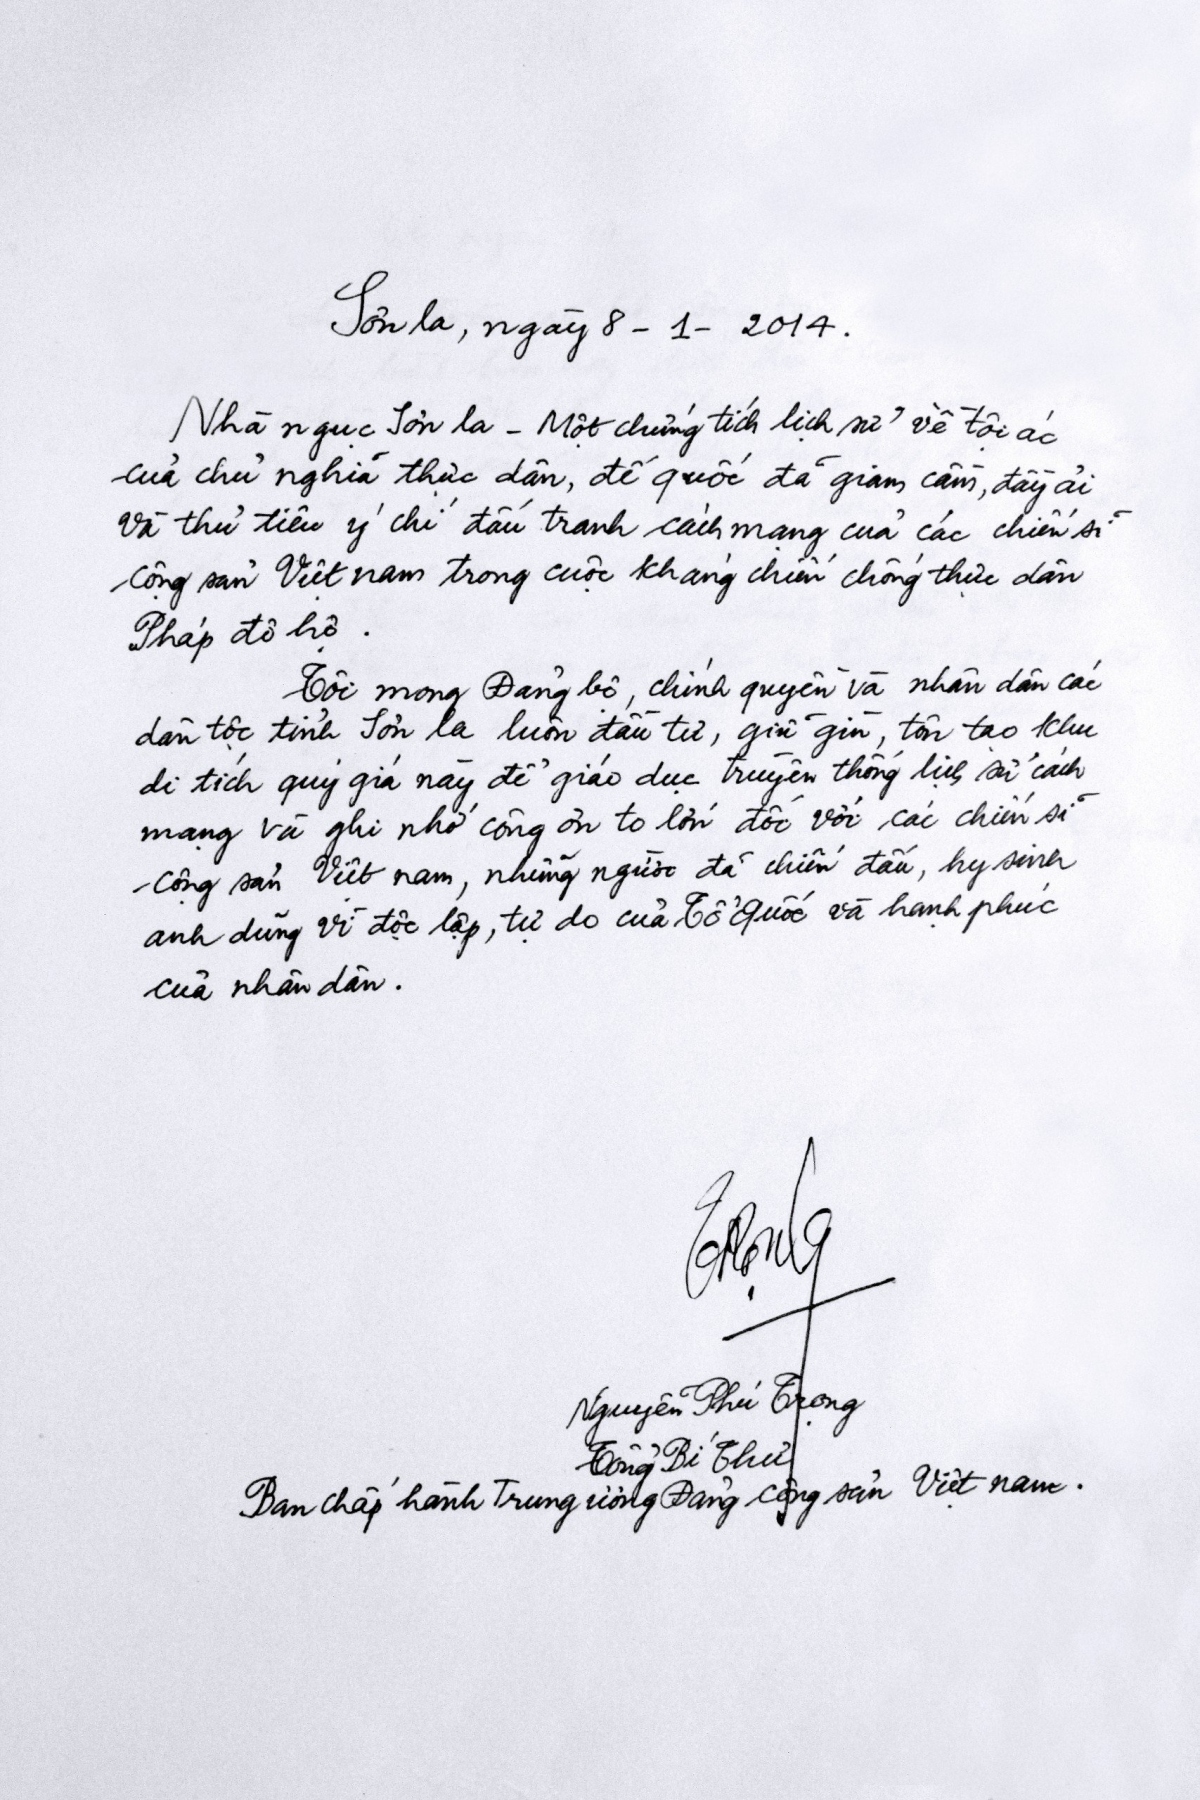 Sơn la, ngày 8 - 1 - 2014.
Nhà ngục Sơn la - Một chứng tích lịch sử về tội ác
của chủ nghĩa thực dân, đế quốc đã giam cầm, đầy ải
và thủ tiêu ý chí đấu tranh cách mạng của các chiến sĩ
cộng sản Việt nam trong cuộc kháng chiến chống thực dân
Pháp đô hộ .
Tôi mong Đảng bộ, chính quyền và nhân dân các
dân tộc tỉnh Sơn la luôn đầu tư, giữ gìn, tôn tạo khu
di tích quý giá này để giáo dục truyền thống lịch sử cách
mạng và ghi nhớ công ơn to lớn đối với các chiến sĩ
cộng sản Việt nam, những người đã chiến đấu, hy sinh
anh dũng vì độc lập, tự do của Tổ Quốc và hạnh phúc
của nhân dân .
Trọng
Nguyễn Phú Trọng
Tổng Bí Thư
Ban chấp hành Trung ương Đảng cộng sản Việt nam .